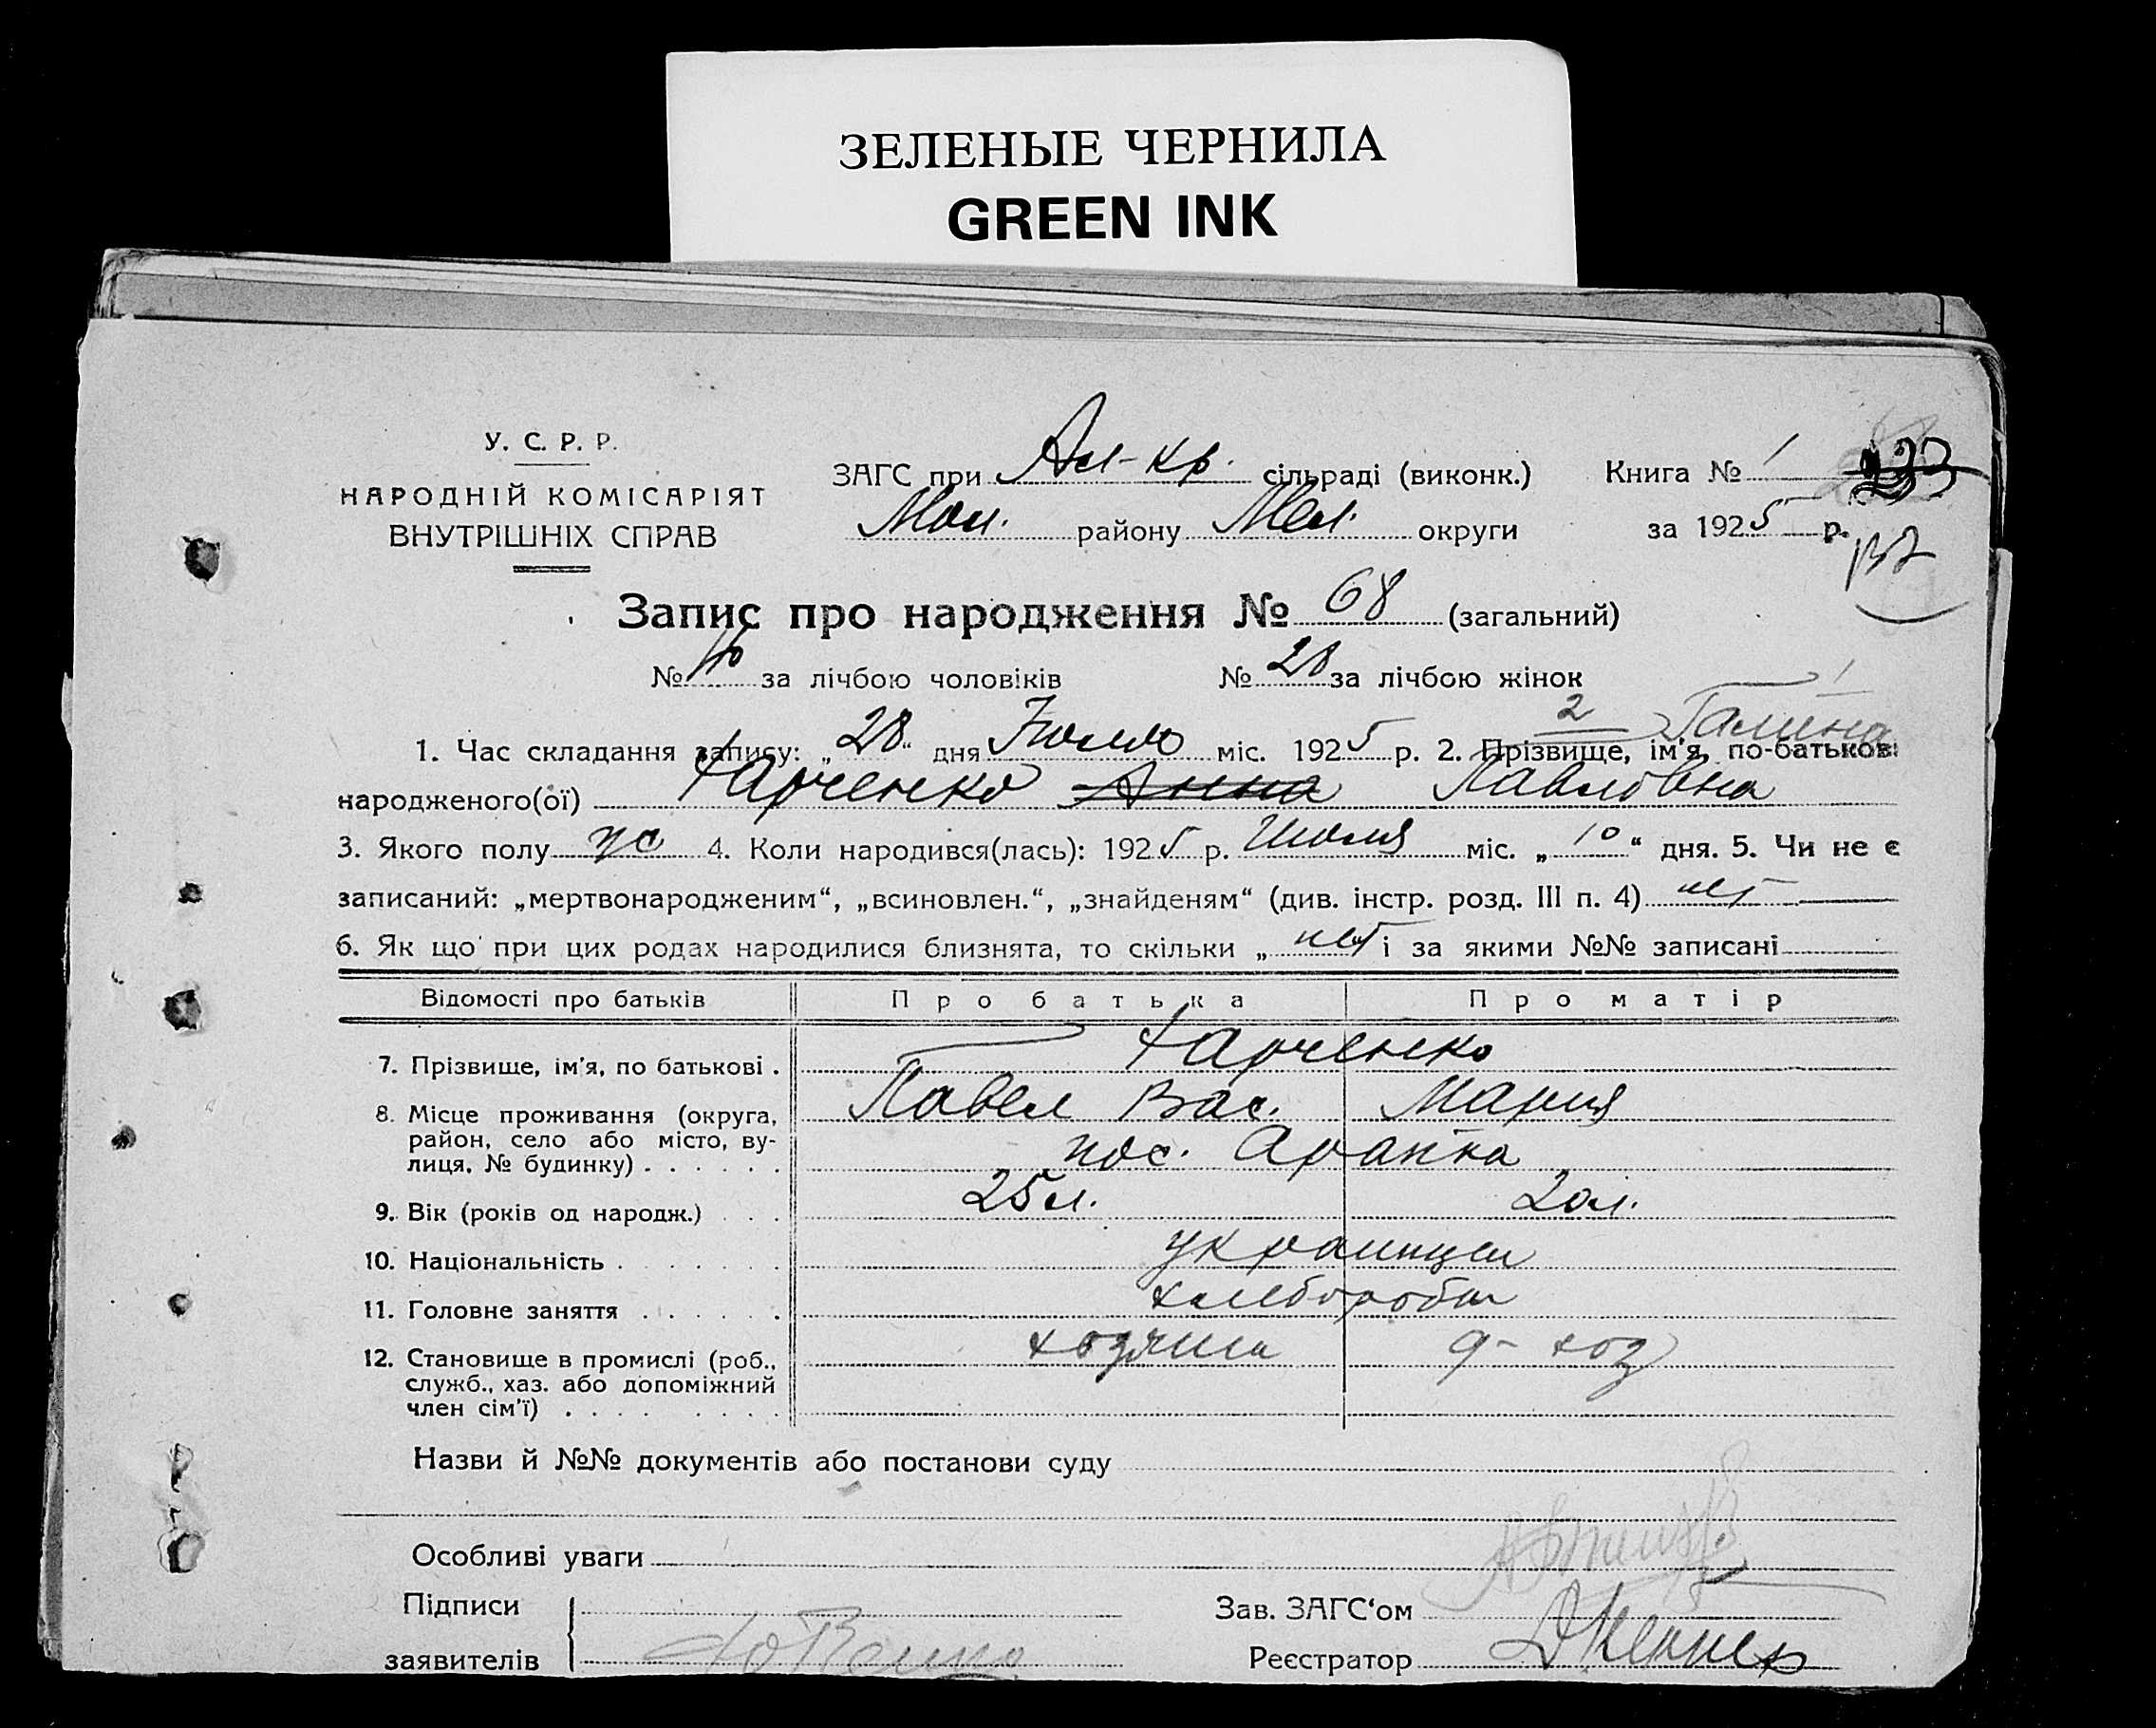 ЗЕЛЕНЫЕ ЧЕРНИЛА
GREEN INK
У. С. Р. Р.
НАРОДНІЙ КОМІСАРІЯТ
ВНУТРІШНІХ СПРАВ
ЗАГС при Ал-кр. сільраді (виконк.)
Мол. району Мел. округи
Книга № 1 233
за 1925 р.
137
Запис про народження № 68 (загальний)
№ 40 за лічбою чоловіків № 28 за лічбою жінок
2 Галина
1. Час складання запису: „28“ дня Июлю міс. 1925 р. 2. Прізвище, ім'я, по-батькові
народженого(ої) Харченко Анна Павловна
3. Якого полу ж 4. Коли народився(лась): 1925 р. Июля міс. „10“ дня. 5. Чи не є
записаний: „мертвонародженим“, „всиновлен.“, „знайденям“ (див. інстр. розд. III п. 4) нет
6. Як що при цих родах народилися близнята, то скільки „нет і за якими №№ записані
Відомості про батьків Про батька Про матір
7. Прізвище, ім'я, по батькові . Харченко
Павел Вас. Мария
8. Місце проживання (округа,
район, село або місто, ву-
лиця, № будинку) . . . . . . пос.
9. Вік (років од народж.) . . . 25 л. 20 л.
10. Національність . . . . . . . украинцы
11. Головне заняття . . . . . . хлеборобы
12. Становище в промислі (роб.,
служб., хаз. або допоміжний
член сім'ї) . . . . . . . . хозяин д-хоз
Назви й №№ документів або постанови суду
Особливі уваги
Підписи
заявителів
Зав. ЗАГС‘ом
Реєстратор